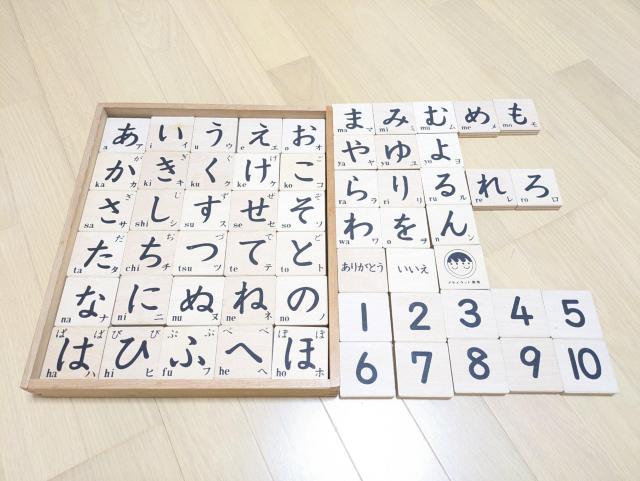 あ a ア い i イ う u ウ え e エ お o オ
か が ka カ き ぎ ki キ く ぐ ku ク け げ ke ケ こ ご ko コ
さ ざ sa サ し じ shi シ す ず su ス せ ぜ se セ そ ぞ so ソ
た だ ta タ ち ぢ chi チ つ づ tsu ツ て で te テ と ど to ト
な na ナ に ni ニ ぬ nu ヌ ね ne ネ の no ノ
ぱ は ば ha ハ ぴ ひ び hi ヒ ぷ ふ ぶ fu フ ぺ へ べ he ヘ ぽ ほ ぼ ho ホ
ま ma マ み mi ミ む mu ム め me メ も mo モ
や ya ヤ ゆ yu ユ よ yo ヨ
ら ra ラ り ri リ る ru ル れ re レ ろ ro ロ
わ wa ワ を o ヲ ん n ン
ありがとう いいえ
1 2 3 4 5
6 7 8 9 10